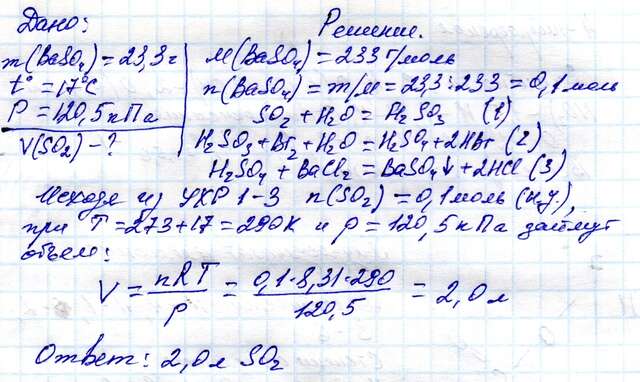 Дано:
Решение.
m(BaSO₄) = 23,3 г
t° = 17°C
P = 120,5 кПа
V(SO₂) - ?
M(BaSO₄) = 233 г/моль
n(BaSO₄) = m/M = 23,3 : 233 = 0,1 моль
SO₂ + H₂O = H₂SO₃ (1)
H₂SO₃ + Br₂ + H₂O = H₂SO₄ + 2HBr (2)
H₂SO₄ + BaCl₂ = BaSO₄↓ + 2HCl (3)
Исходя из УХР 1-3 n(SO₂) = 0,1 моль (н.у.),
при T = 273 + 17 = 290K и p = 120,5 кПа займут
объем:
V = nRT/p = 0,1·8,31·290/120,5 = 2,0 л
Ответ: 2,0 л SO₂